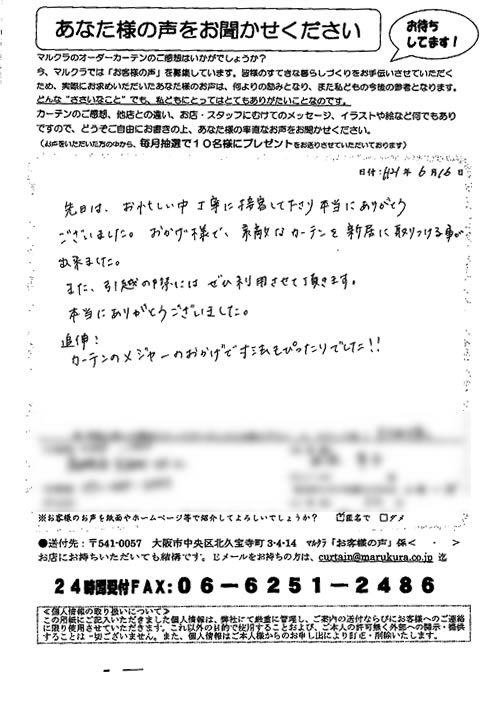 あなた様の声をお聞かせください
お待ち
してます!
マルクラのオーダーカーテンのご感想はいかがでしょうか?
今、マルクラでは「お客様の声」を募集しています。皆様のすてきな暮らしづくりをお手伝いさせていただく
ため、実際にお求めいただいたあなた様のお声は、何よりの励みとなり、また私どもの今後の参考となります。
どんな“ささいなこと”でも、私どもにとってはとてもありがたいことなのです。
カーテンのご感想、他店との違い、お店・スタッフにむけてのメッセージ、イラストや絵など何でもあり
ですので、どうぞご自由にお書きの上、あなた様の率直なお声をお聞かせください。
(お声をいただいた方の中から、毎月抽選で10名様にプレゼントをお送りさせていただいております)
日付:H21年6月16日
先日は、お忙しい中丁寧に接客して下さり本当にありがとう
ございました。おかげ様で、素敵なカーテンを新居に取りつける事が
出来ました。
また、引越の際にはぜひ利用させて頂きます。
本当にありがとうございました。
追伸!
カーテンのメジャーのおかげで寸法もぴったりでした!!
※お客様のお声を紙面やホームページ等で紹介してよろしいでしょうか? ☑匿名で □ダメ
●送付先:〒541-0057 大阪市中央区北久宝寺町3-4-14 マルクラ「お客様の声」係< ・ >
お店にお持ちいただいても結構です。Eメールをお持ちの方は、curtain@marukura.co.jp 迄
24時間受付FAX:06-6251-2486
≪個人情報の取り扱いについて≫
この用紙にご記入いただきました個人情報は、弊社にて厳重に管理し、ご案内の送付ならびにお客様へのご連絡
に限り使用させていただきます。これ以外の目的で使用することおよび、ご本人の許可無く外部への開示・提供
することは一切ございません。また、個人情報はご本人様からのお申し出により訂正・削除いたします。